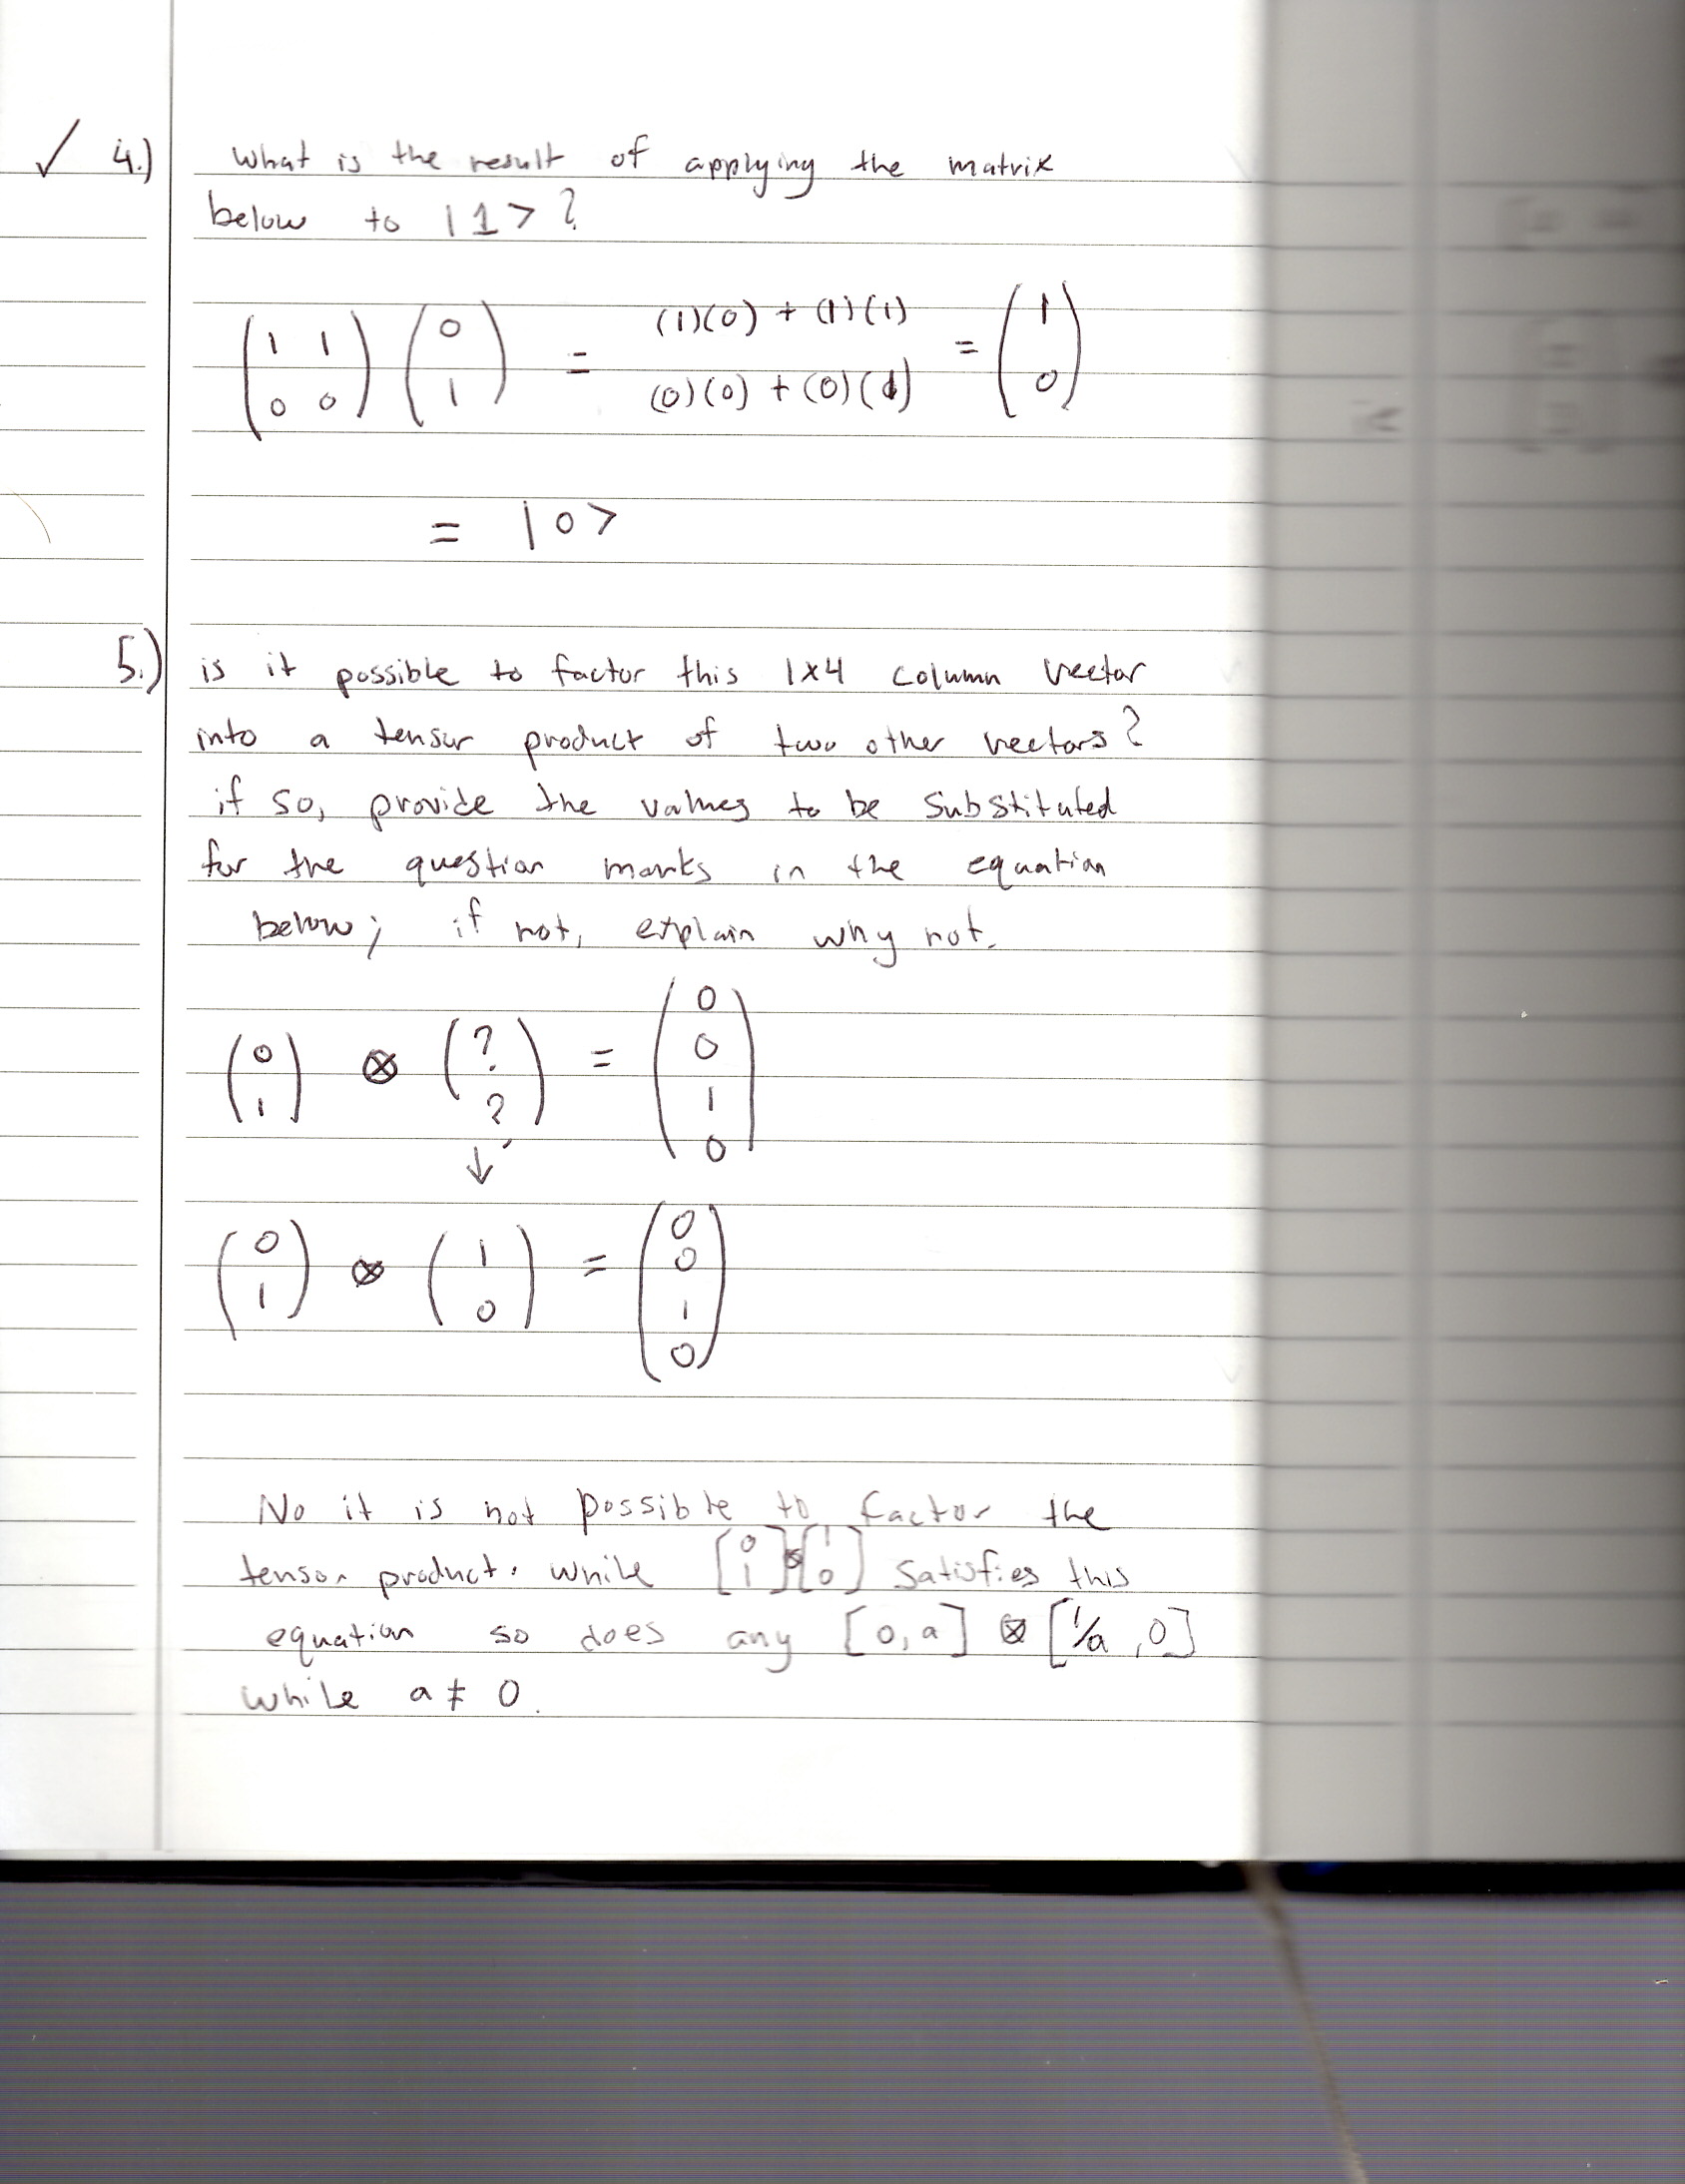 ✓ 4.) What is the result of applying the matrix
below to |1>?
( 1 1 ) ( 0 ) = (1)(0) + (1)(1) = ( 1 )
( 0 0 ) ( 1 ) (0)(0) + (0)(1) ( 0 )
= |0>
5.) is it possible to factor this 1x4 column vector
into a tensor product of two other vectors?
if so, provide the values to be substituted
for the question marks in the equation
below; if not, explain why not.
( 0 ) ⊗ ( ? ) = ( 0 )
( 1 ) ( ? ) ( 0 )
( 1 )
( 0 )
↓
( 0 ) ⊗ ( 1 ) = ( 0 )
( 1 ) ( 0 ) ( 0 )
( 1 )
( 0 )
No it is not possible to factor the
tensor product. while [0 1]⊗[1 0] satisfies this
equation so does any [0,a] ⊗ [1/a ,0]
while a ≠ 0.